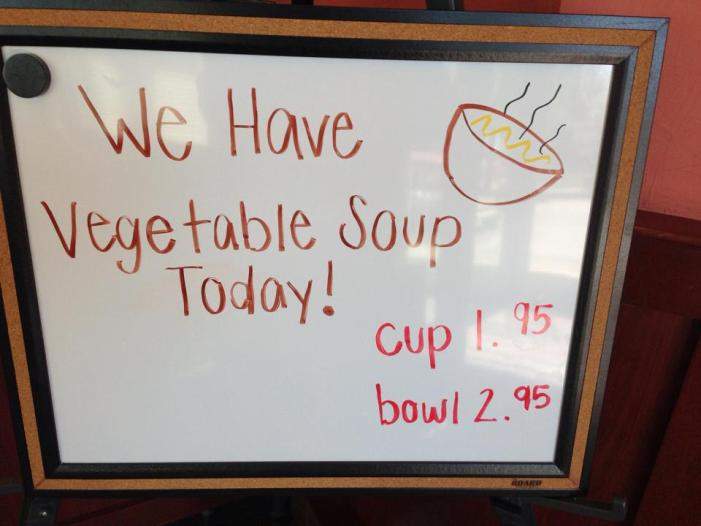 We Have
Vegetable Soup
Today!
cup 1.95
bowl 2.95
BOARD